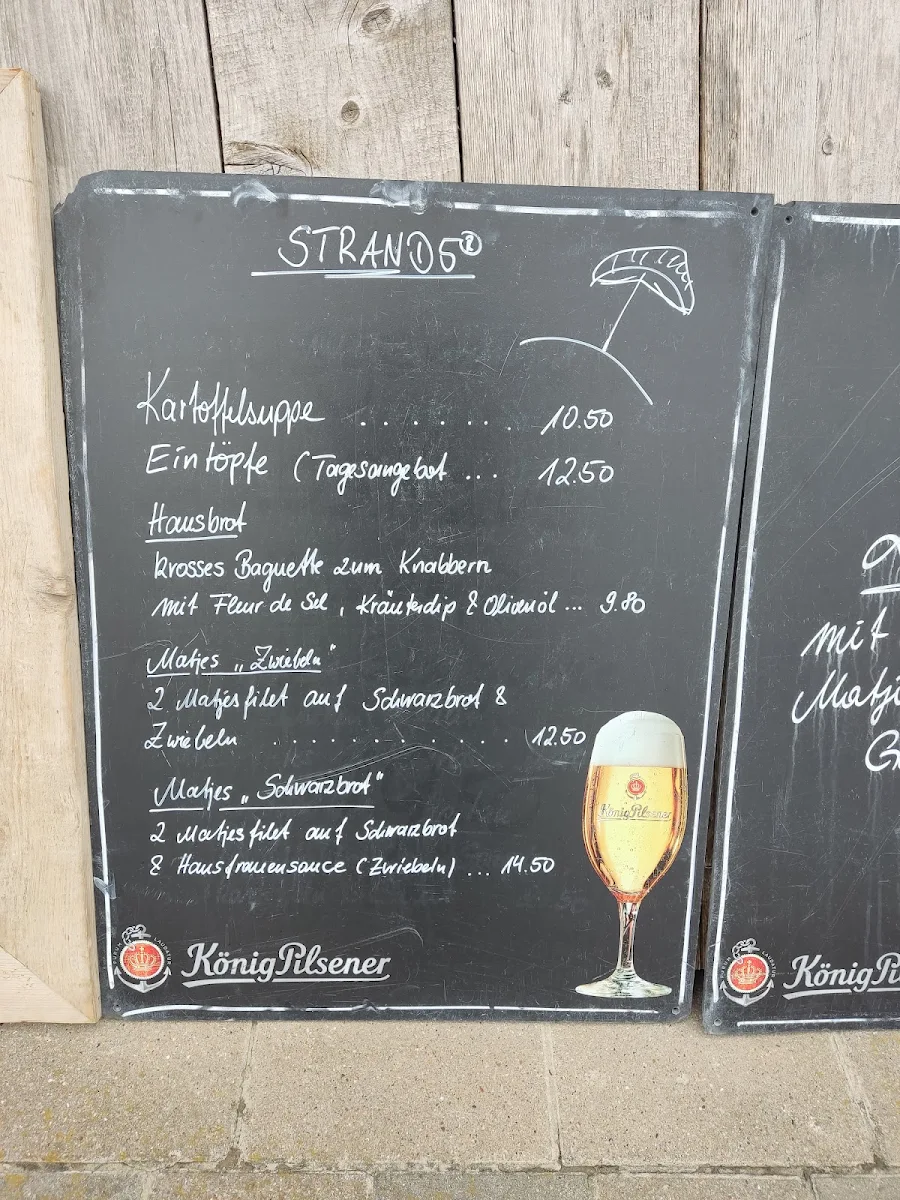 STRAND5®
Kartoffelsuppe . . . . . . . . 10.50
Eintöpfe (Tagesangebot ... 12.50
Hausbrot
krosses Baguette zum Knabbern
mit Fleur de Sel, Kräuterdip & Olivenöl ... 9.80
Matjes „Zwiebeln"
2 Matjesfilet auf Schwarzbrot &
Zwiebeln . . . . . . . . . . . 12.50
Matjes „Schwarzbrot"
2 Matjesfilet auf Schwarzbrot
& Hausfrauensauce (Zwiebeln) ... 14.50
König Pilsener
PURUM LAUDATUR
König Pilsener
mit
Matj
PURUM LAUDATUR
König Pi